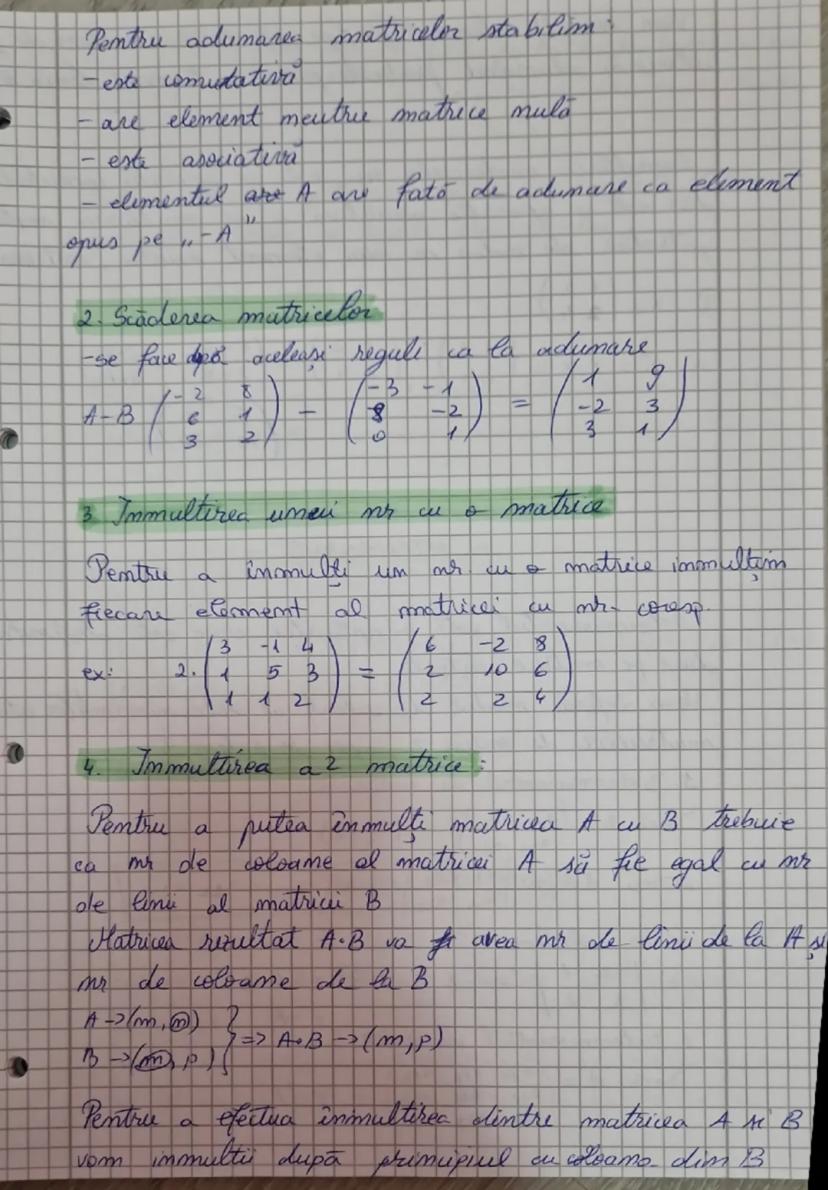 Pentru adunarea matricelor stabilim:
- este comutativă
- are element neutru matrice nulă
- este asociativă
- elementul A are fată de adunare ca element
opus pe „-A"
2. Scăderea matricelor
- se face după aceleași reguli ca la adunare
A-B ( -2 8 ; 6 1 ; 3 2 ) - ( -3 -1 ; 8 -2 ; 0 1 ) = ( 1 9 ; -2 3 ; 3 1 )
3 Inmultirea unui nr cu o matrice
Pentru a înmulți un nr cu o matrice inmulțim
fiecare element al matricei cu nr. coresp.
ex: 2. ( 3 -1 4 ; 1 5 3 ; 1 1 2 ) = ( 6 -2 8 ; 2 10 6 ; 2 2 4 )
4. Inmultirea a 2 matrice:
Pentru a putea înmulți matricea A cu B trebuie
ca nr de coloane al matricei A să fie egal cu nr
de linii al matricii B
Matricea rezultat A·B va avea nr de linii de la A și
nr de coloane de la B
A->(m, n)
B->(n, p) } => A·B ->(m, p)
Pentru a efectua înmultirea dintre matricea A și B
vom inmultii după principiul cu coloana din B